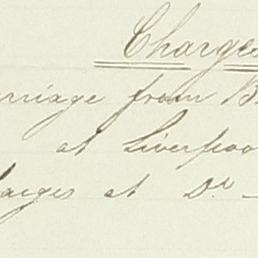 Charges
rriage from B
at Liverpoo
harges at Do